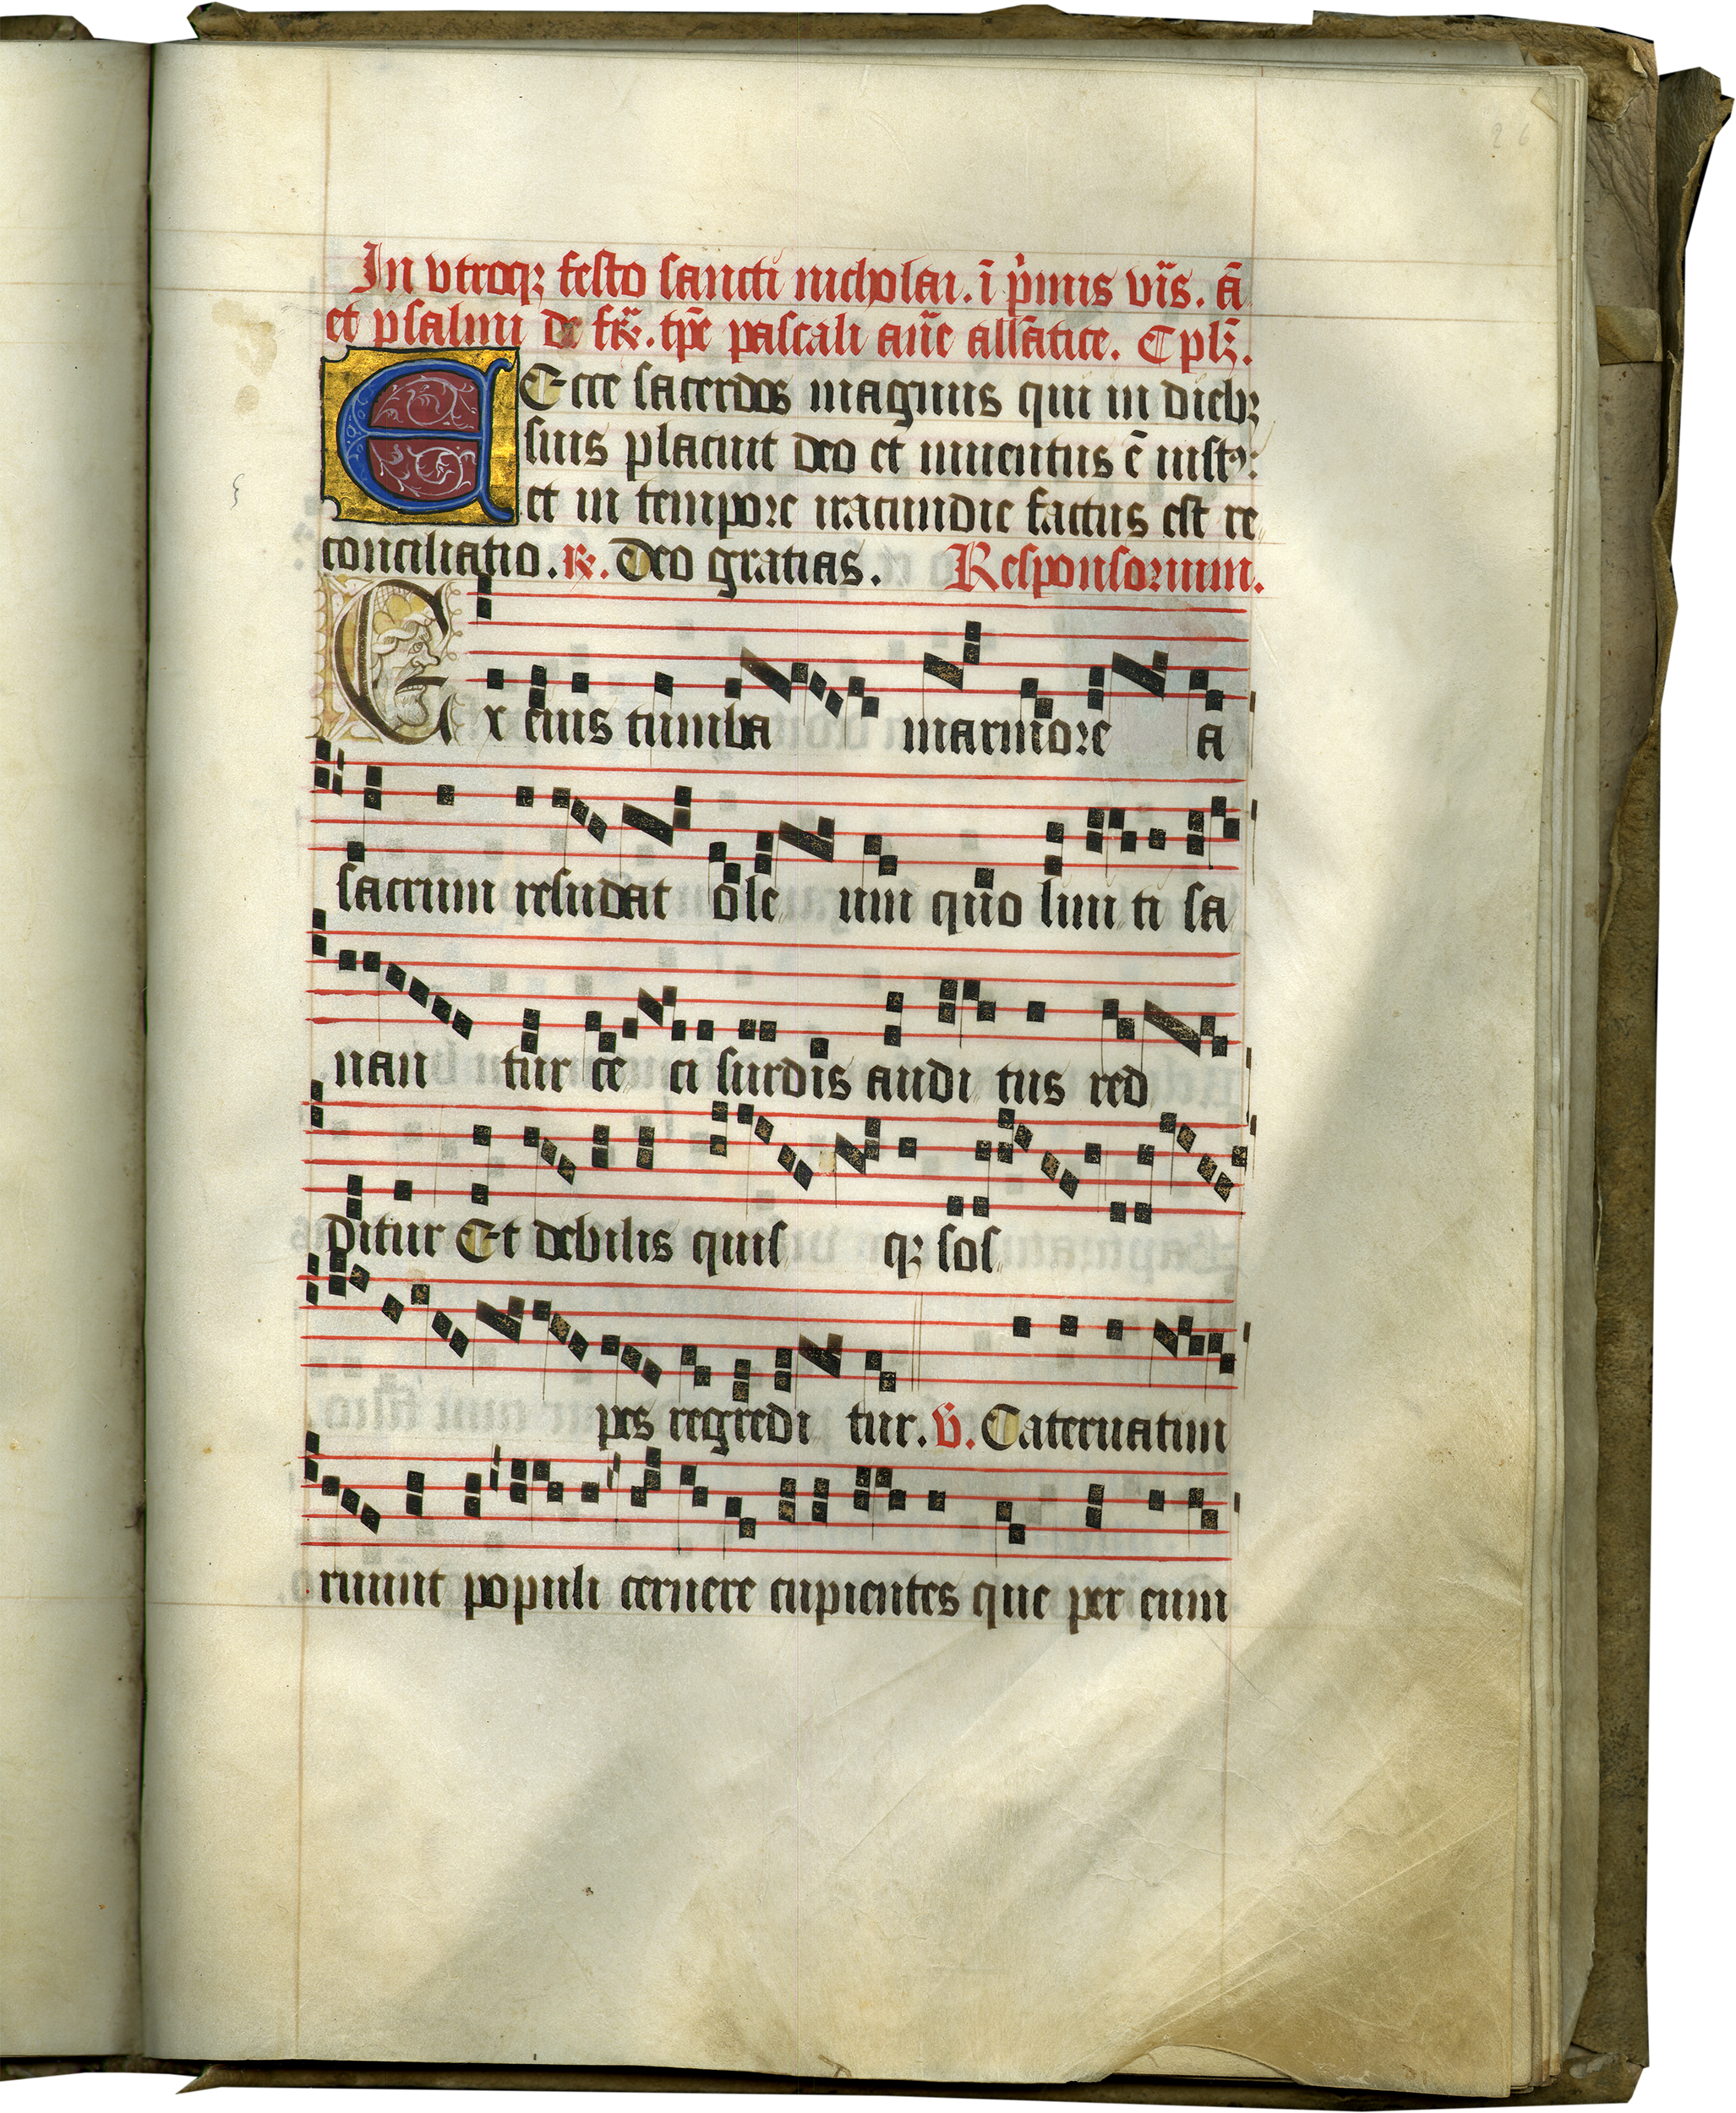 In vtroq; festo sancti nicholai. ī p̄mis vīs. ā
et psalmi de fīa. tp̄e pascali añe alłatice. Cpłm.
Ecce sacerdos magnus qui in dieb;
suis placuit deo et inuentus ē iustꝰ:
et in tempore iracundie factus est re
conciliatio. ℟. Deo gratias. Responsorium.
Ex eius tumba marmore a
sacrum resudat ole um quo lini ti sa
nan tur ce ci surdis audi tus red
ditur Et debilis quis q; sos
pes regredi tur. V. Cateruatim
ruunt populi cernere cupientes que per eum
26